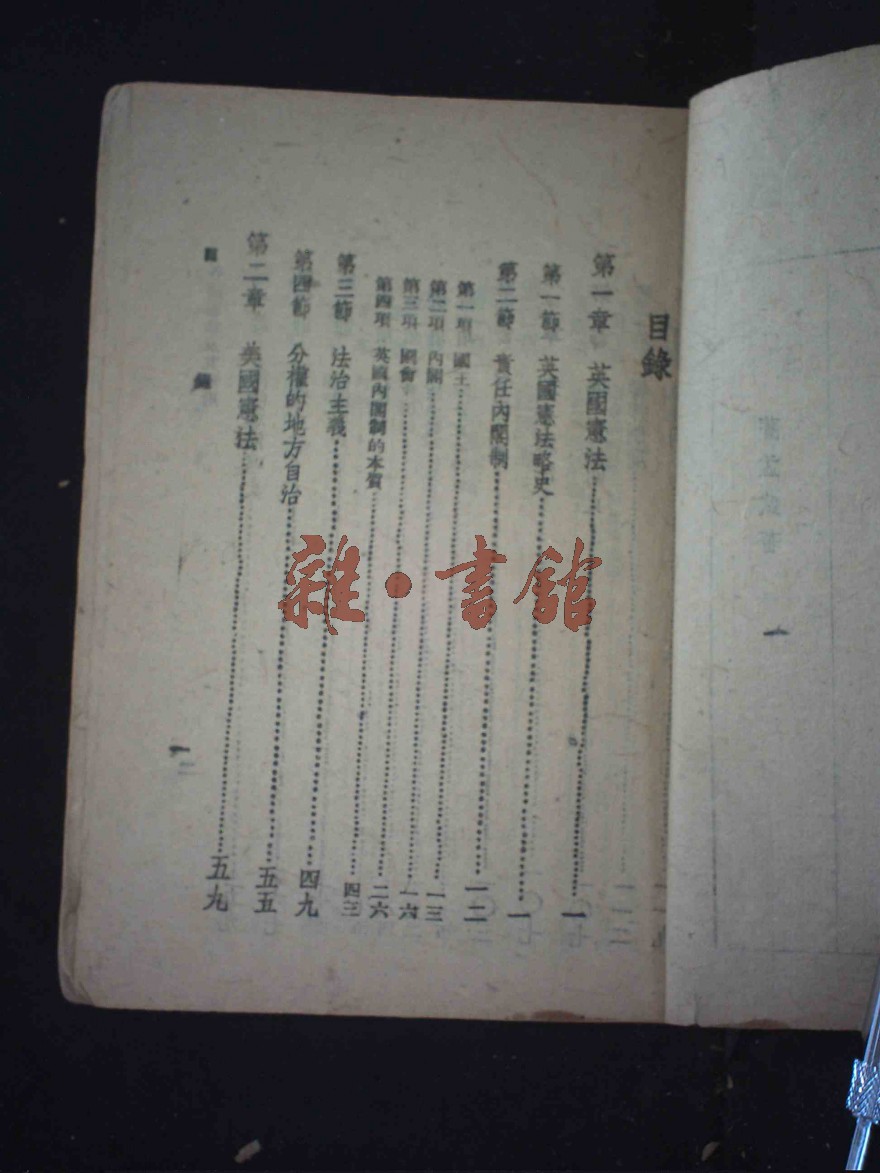 目錄
第一章 英國憲法……一
第一節 英國憲法略史……一
第二節 責任內閣制……一二
第一項 國王……一三
第二項 內閣……一六
第三項 國會……二六
第四項 英國內閣制的本質……四三
第三節 法治主義……四九
第四節 分權的地方自治……五五
第二章 美國憲法……五九
目 錄 一
雜·書館